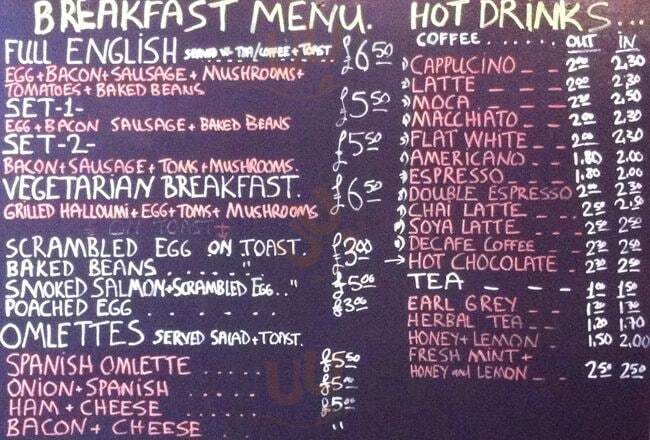 BREAKFAST MENU.
FULL ENGLISH SERVED W. TEA/COFFEE + TOAST £6.50
EGG+BACON+SAUSAGE+MUSHROOMS+
TOMATOES+BAKED BEANS
SET-1- £5.50
EGG+BACON SAUSAGE+BAKED BEANS
SET-2- £5.50
BACON+SAUSAGE+TOMS+MUSHROOMS.
VEGETARIAN BREAKFAST. £6.50
GRILLED HALLOUMI+EGG+TOMS+MUSHROOMS
ON TOAST
SCRAMBLED EGG ON TOAST. £3.00
BAKED BEANS ..... "
SMOKED SALMON+SCRAMBLED EGG.." £5.00
POACHED EGG . . . . . . . £3.00
OMLETTES SERVED SALAD+TOAST.
SPANISH OMLETTE ..... £5.50
ONION+SPANISH ..... £5.00
HAM+CHEESE ..... £5.00
BACON+CHEESE ..... "
HOT DRINKS...
COFFEE ...... OUT IN
CAPPUCINO _ _ 2.00 2.30
LATTE _ _ _ 2.00 2.30
MOCA _ _ _ 2.50
MACCHIATO _ 2.00 2.30
FLAT WHITE _ _ 2.00 2.30
AMERICANO _ _ 1.80 2.00
ESPRESSO _ _ 1.80 2.00
DOUBLE ESPRESSO 2.00 2.30
CHAI LATTE _ _ 2.50
SOYA LATTE _ _ 2.50
DECAFE COFFEE _ _ 2.50
HOT CHOCOLATE _ 2.50
TEA _ _ _ 1.00 1.50
EARL GREY _ _ 1.70
HERBAL TEA _ _ 1.20 1.70
HONEY+LEMON _ 1.50 2.00
FRESH MINT+
HONEY and LEMON _ _ 2.50 2.50